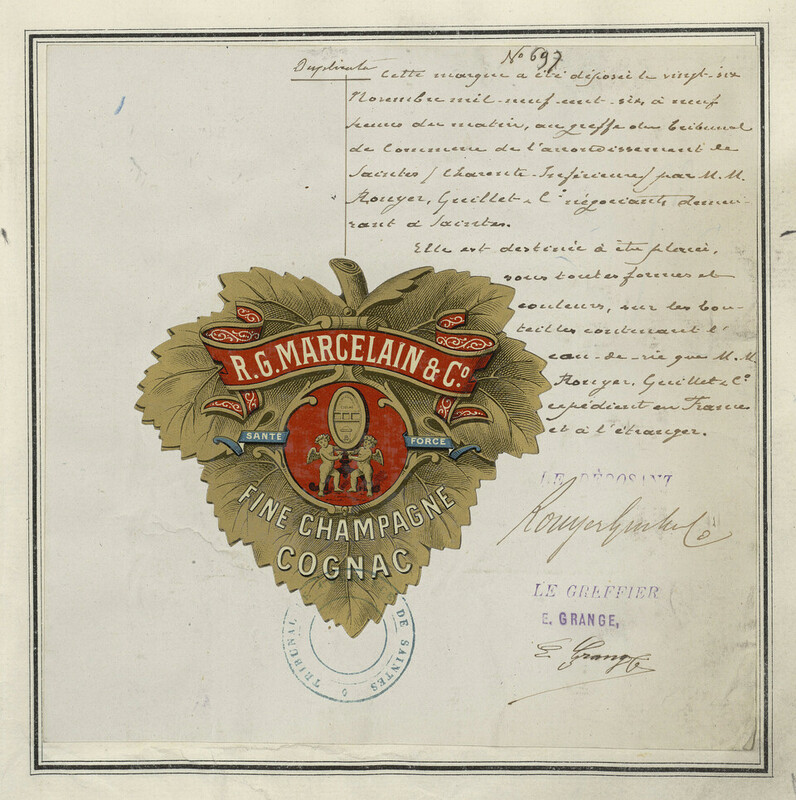 Nº 697
Duplicata
Cette marque a été déposée le vingt-six
Novembre mil-neuf-cent-six à neuf
heures du matin, au greffe du Tribunal
de Commerce de l'arrondissement de
Saintes (Charente-Inférieure) par M.M.
Rouyer, Guillet & Cº négociants demeu-
rant à Saintes.
Elle est destinée à être placée,
sous toutes formes et
couleurs, sur les bou-
teilles contenant l'
eau-de-vie que M.M.
Rouyer, Guillet & Cº
expédient en France
et à l'étranger.
R.G. MARCELAIN & Cº
SANTÉ
FORCE
FINE CHAMPAGNE
COGNAC
LE DÉPOSANT
Rouyer Guillet & Co
LE GREFFIER
E. GRANGE,
E. Grange
TRIBUNAL DE SAINTES